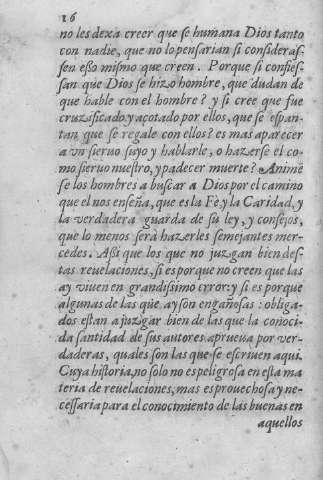 16
no les dexa creer que se humana Dios tanto
con nadie, que no lo pensarian si consideras-
sen esso mismo que creen. Porque si confies-
san que Dios se hizo hombre, que dudan de
que hable con el hombre? y si cree que fue
cruzificado y açotado por ellos, que se espan-
tan que se regale con ellos? es mas aparecer
a vn sieruo suyo y hablarle, o hazerse el co-
mo sieruo nuestro, y padecer muerte? Animē
se los hombres a buscar a Dios por el camino
que el nos enseña, que es la Fe, y la Caridad, y
la verdadera guarda de su ley, y consejos,
que lo menos serà hazerles semejantes mer-
cedes. Assi que los que no juzgan bien des-
tas reuelaciones, si es porque no creen que las
ay viuen en grandissimo error: y si es porque
algunas de las que ay son engañosas: obliga-
dos estan a juzgar bien de las que la conoci-
da santidad de sus autores aprueua por ver-
daderas, quales son las que se escriuen aqui.
Cuya historia, no solo no es peligrosa en esta ma
teria de reuelaciones, mas es prouechosa y ne-
cessaria para el conocimiento de las buenas en
aquellos